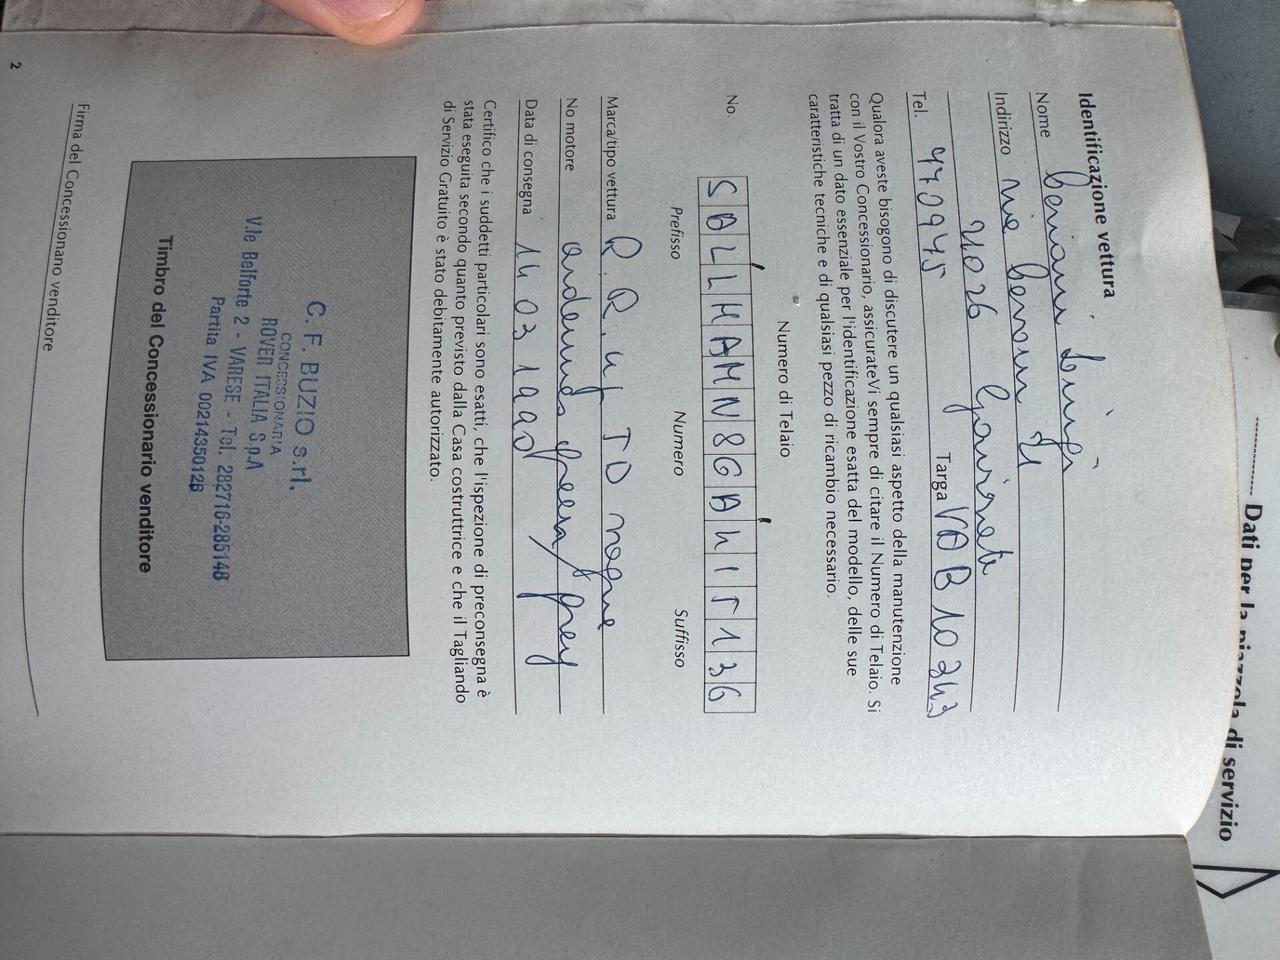 Identificazione vettura
Nome
Indirizzo via
21026 Gavirate
Tel. 770975 Targa VA B10343
Qualora aveste bisogno di discutere un qualsiasi aspetto della manutenzione
con il Vostro Concessionario, assicurateVi sempre di citare il Numero di Telaio. Si
tratta di un dato essenziale per l'identificazione esatta del modello, delle sue
caratteristiche tecniche e di qualsiasi pezzo di ricambio necessario.
Numero di Telaio
No. SALLHAMN8GA415136
Prefisso Numero Suffisso
Marca/tipo vettura R.R. TD
No motore green/grey
Data di consegna 14 03 1990
Certifico che i suddetti particolari sono esatti, che l'ispezione di preconsegna è
stata eseguita secondo quanto previsto dalla Casa costruttrice e che il Tagliando
di Servizio Gratuito è stato debitamente autorizzato.
C. F. BUZIO s.rl.
CONCESSIONARIA
ROVER ITALIA S.p.A
V.le Belforte 2 - VARESE - Tel. 282716-285148
Partita IVA 00214350126
Timbro del Concessionario venditore
Firma del Concessionario venditore
2
Dati per la piazzola di servizio